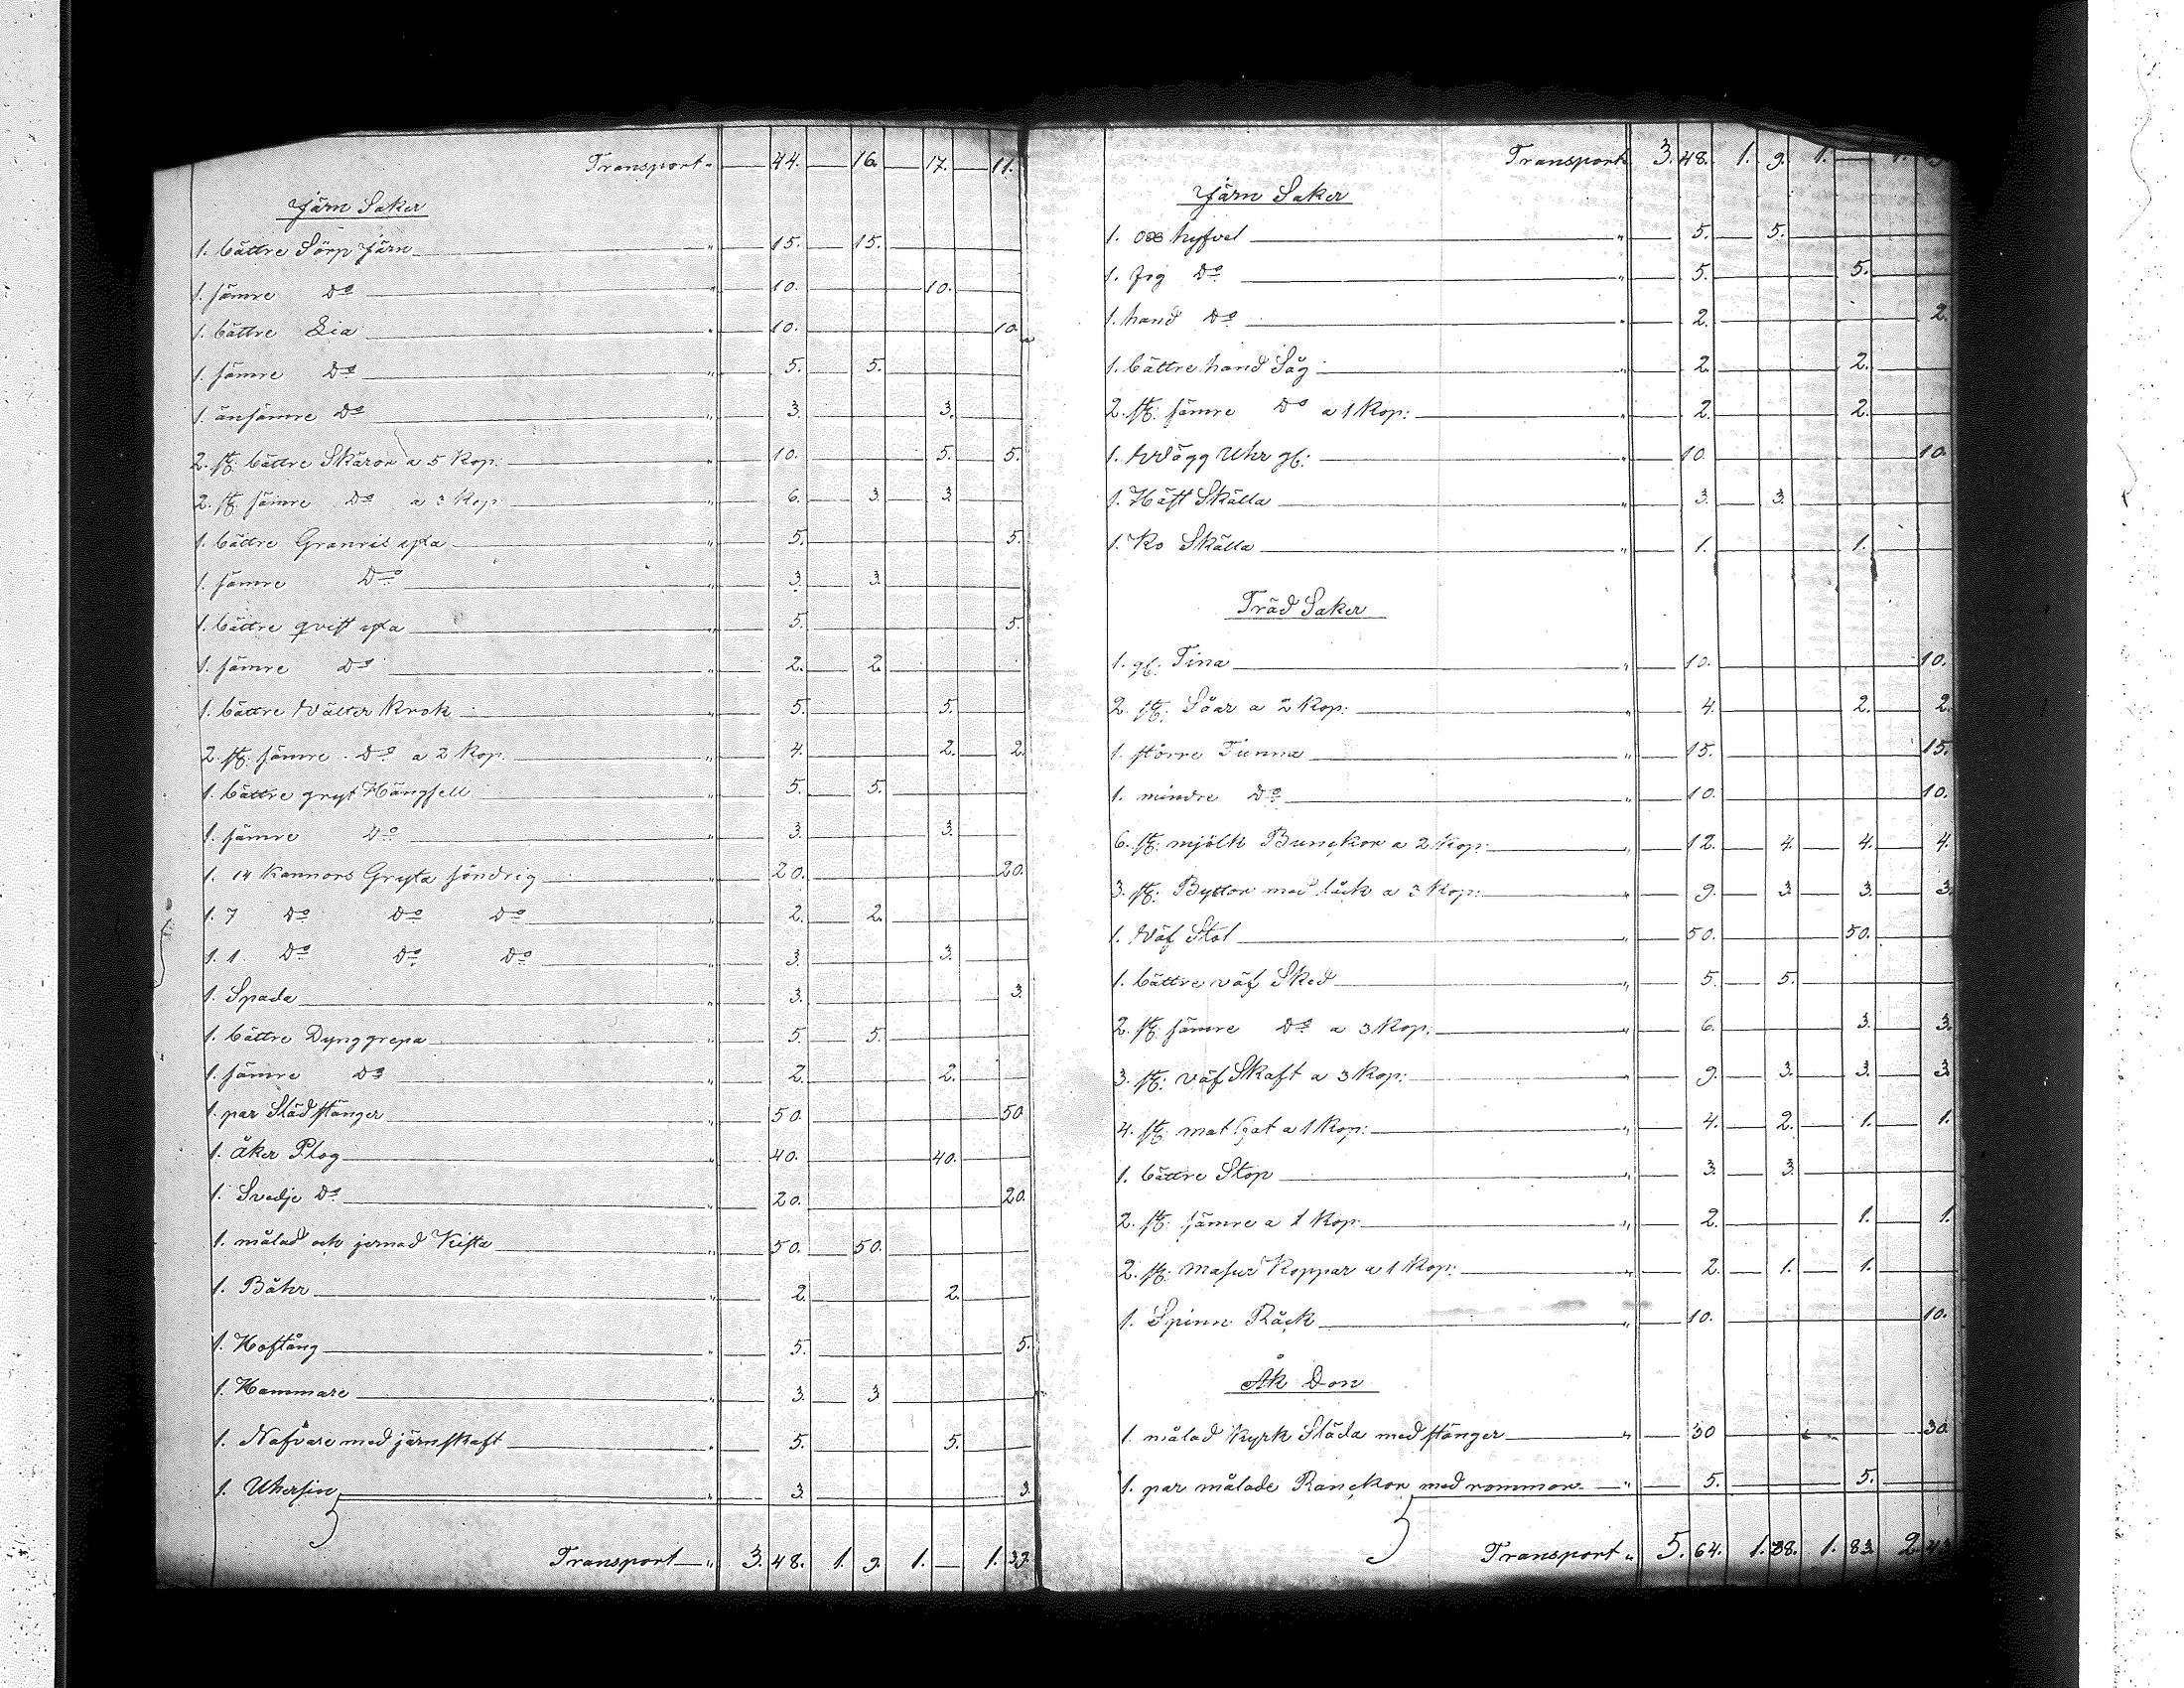 Transport " 44. 16. 17. 11.
Järn Saker
1. bättre Sörp järn " 15. 15.
1. sämre Do " 10. 10.
1. bättre Lia " 10. 10.
1. sämre Do " 5. 5.
1. änsämre Do " 3. 3.
2. st: bättre Skäror a 5 Kop: " 10. 5. 5.
2. st: sämre Do a 3 Kop " 6. 3. 3.
1. bättre Granris yxa " 5. 5.
1. sämre Do " 3. 3.
1. bättre qvist yxa " 5. 5.
1. sämre Do " 2. 2.
1. bättre Wälter Krok " 5. 5.
2. st: sämre Do a 2 Kop. " 4. 2. 2.
1. bättre gryt Hängsell " 5. 5.
1. sämre Do " 3. 3.
1. 14 Kannors Gryta söndrig " 20. 20.
1. 7 Do Do Do " 2. 2.
1. 1. Do Do Do " 3. 3.
1. Spada " 3. 3.
1. bättre Dynggrepa " 5. 5.
1. sämre Do " 2. 2.
1. par Städstänger " 50. 50
1. åker Plog " 40. 40.
1. Svedje Do " 20. 20.
1. målad och jernad Kista " 50. 50.
1. Båhr " 2. 2.
1. Hoftång " 5. 5.
1. Hammare " 3. 3
1. Nafvare med järnskaft " 5. 5.
1. " 3. 3.
Transport " 3. 48. 1. 9. 1. — 1. 39.
Transport 3. 48. 1. 9. 1. — 1.
Järn Saker
1. hyfvel " 5. 5.
1. fog Do " 5. 5.
1. hand Do " 2. 2.
1. bättre hand Såg " 2. 2.
2. st: sämre Do a 1 Kop: " 2. 2.
1. Wägg Uhr gl: " 10. 10.
1. Häst Skälla " 3. 3.
1. Ko Skälla " 1. 1.
Träd Saker
1. gl: Tina " 10. 10.
2. st: Såar a 2 Kop: " 4. 2. 2.
1. större Tunna " 15. 15.
1. mindre Do " 10. 10.
6. st: mjölk Bunckor a 2 Kop: " 12. 4. 4. 4.
3. st: Byttor med låck a 3 Kop: " 9. 3 3. 3.
1. Väf Stol " 50. 50.
1. bättre väf Sked " 5. 5.
2. st: sämre Do a 3 Kop: " 6. 3. 3.
3. st: väf Skaft a 3 Kop: " 9. 3. 3. 3
4. st: mat fat a 1 Kop: " 4. 2. 1. 1.
1. bättre Stop " 3. 3.
2. st: sämre a 1 Kop: " 2. 1. 1.
2. st: masur Koppar a 1 Kop: " 2. 1. 1.
1. Spinn Råck " 10. 10.
Åk Don
1. målad Kyrk Släda med stänger " 30 30.
1. par målade Ranckor med rommor " 5. 5.
Transport " 5. 64. 1. 38. 1. 83. 2. 43